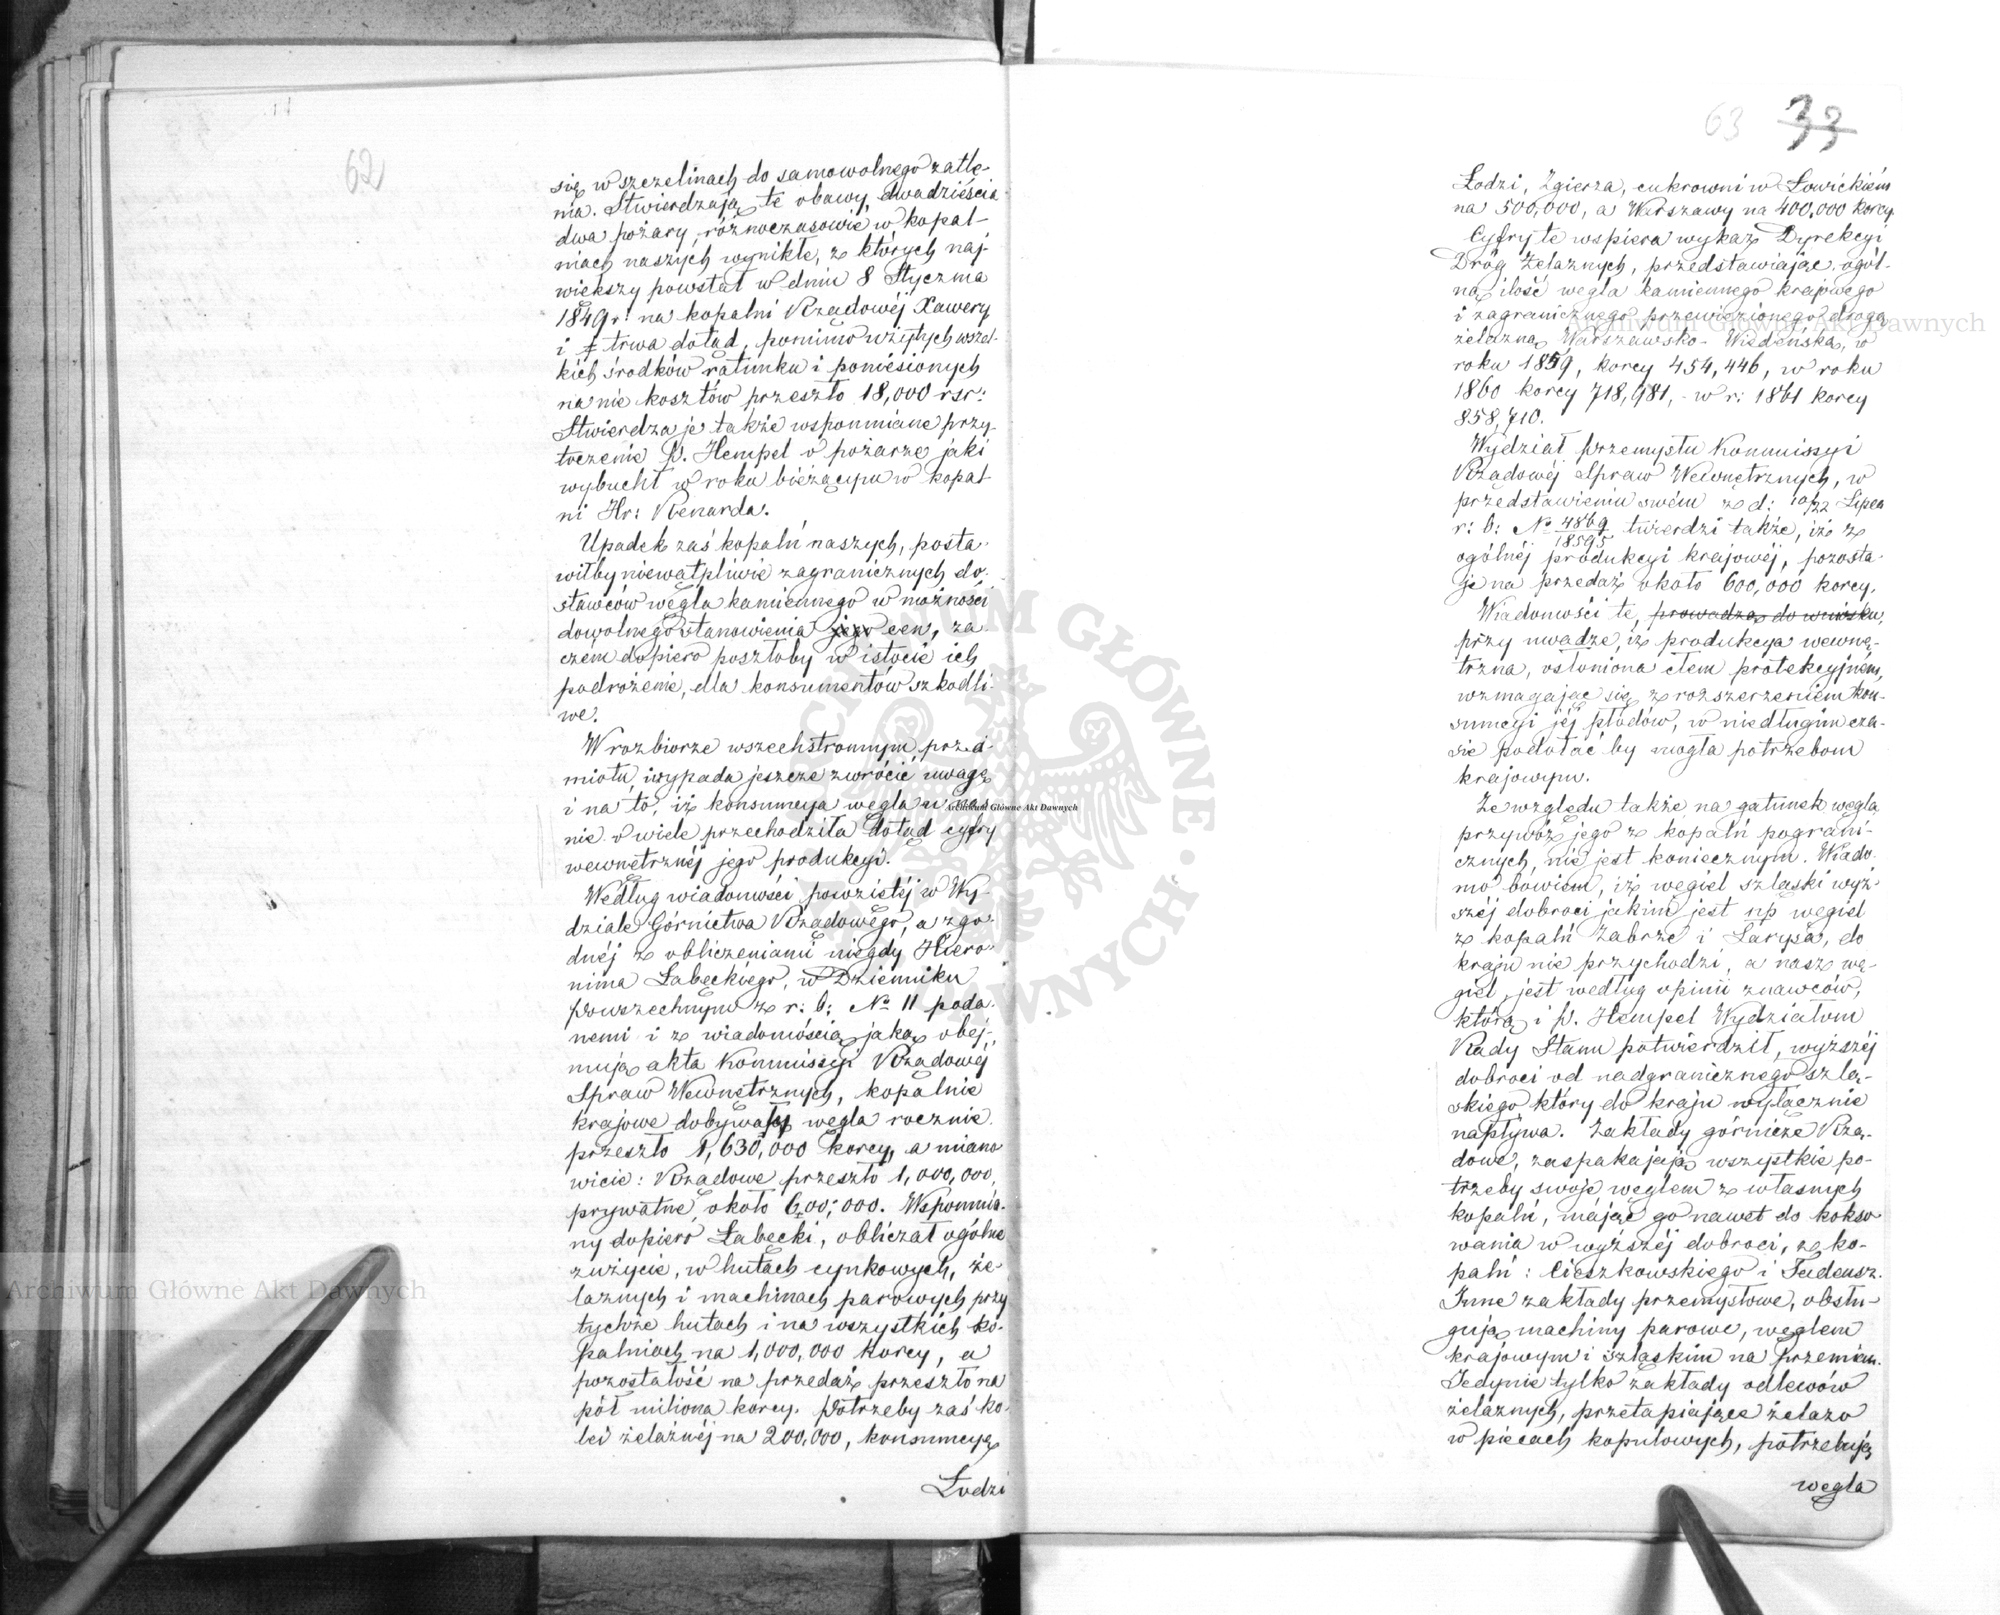 62
się w szczelinach do samowolnego zatle-
nia. Stwierdzają te obawy, dwadzieścia
dwa pożary, różnoczasowie w kopal-
niach naszych wynikłe, z których naj-
większy powstał w dniu 8 Stycznia
1849 r: na kopalni Rządowéj Xawery
i trwa dotąd, pomimo użytych wszel-
kich środków ratunku i poniesionych
na nie kosztów przeszło 18,000 rsr:
Stwierdza je także wspomniane przy-
toczenie P. Hempel o pożarze jaki
wybuchł w roku bieżącym w kopal
ni Hr: Renarda.
Upadek zaś kopalń naszych, posta-
wiłby niewątpliwie zagranicznych do-
stawców węgla kamiennego w możności
dowolnego stanowienia jego cen, za-
czém dopiero poszłoby w istocie ich
podrożenie, dla konsumentów szkodli-
we.
W rozbiorze wszechstronnym przed-
miotu, wypada jeszcze zwrócić uwagę
i na to, iż konsumcya węgla u nas
nie o wiele przechodziła dotąd cyfry
wewnętrznéj jego produkcyi.
Według wiadomości powziętéj w Wy-
dziale Górnictwa Rządowego, a zgo-
dnéj z obliczeniami niegdy Hiero-
nima Łabęckiego, w Dzienniku
Powszechnym z r: b: No 11 poda-
nemi i z wiadomością jaką obej-
mują akta Kommissyi Rządowéj
Spraw Wewnętrznych, kopalnie
krajowe dobywały węgla rocznie
przeszło 1,630,000 korcy, a miano
wicie: Rządowe przeszło 1,000,000,
prywatne około 600,000. Wspomnia-
ny dopiero Łabęcki, obliczał ogólne
zużycie, w hutach cynkowych, że-
laznych i machinach parowych przy
tychże hutach i na wszystkich ko-
palniach na 1,000,000 korcy, a
pozostałość na przedaż przeszło na
pół miliona korcy. Potrzeby zaś ko-
lei żelaznéj na 200,000, konsumcyą
Łodzi
63 33
Łodzi, Zgierza, cukrowni w Łowickiém
na 500,000, a Warszawy na 400,000 korcy.
Cyfry te wspiera wykaz Dyrekcyi
Dróg Żelaznych, przedstawiając ogól-
ną ilość węgla kamiennego krajowego
i zagranicznego przewiezionego drogą
żelazną Warszawsko-Wiedeńską, w
roku 1859, korcy 454,446, w roku
1860 korcy 718,981, - w r: 1861 korcy
858,710.
Wydział Przemysłu Kommissyi
Rządowéj Spraw Wewnętrznych, w
przedstawieniu swém z d: 10/22 Lipca
r: b: No 4869/18595 twierdzi także, iż z
ogólnéj produkcyi krajowéj, pozosta-
je na przedaż około 600,000 korcy.
Wiadomości te, prowadzą do wniosku,
przy uwadze, iż produkcya wewnę-
trzna, osłoniona cłem protekcyjném,
wzmagając się z rozszerzeniem kon-
sumcyi jéj płodów, w niedługim cza-
sie podołać by mogła potrzebom
krajowym.
Ze względu także na gatunek węgla
przywóz jego z kopalń pograni-
cznych, nie jest koniecznym. Wiado-
mo bowiem, iż węgiel szlaski wyż-
széj dobroci jakim jest np węgiel
z kopalń Zabrze i Larysa, do
kraju nie przychodzi, a nasz wę-
giel, jest według opinii znawców,
którą i P. Hempel Wydziałom
Rady Stanu potwierdził, wyższéj
dobroci od nadgranicznego szlą-
skiego, który do kraju wyłącznie
napływa. Zakłady górnicze Rzą-
dowe, zaspakajają wszystkie po-
trzeby swoje węglem z własnych
kopalń, mając go nawet do kokso-
wania w wyższéj dobroci, z ko-
palń: Cieszkowskiego i Tadeusz.
Inne zakłady przemysłowe, obsłu-
gują machiny parowe, węglem
krajowym i szląskim na przemian.
Jedynie tylko zakłady odlewów
żelaznych, przetapiające żelazo
w piecach kopulowych, potrzebują
węgla
Archiwum Główne Akt Dawnych
Archiwum Główne Akt Dawnych
Archiwum Główne Akt Dawnych
ARCHIWUM GŁÓWNE AKT DAWNYCH